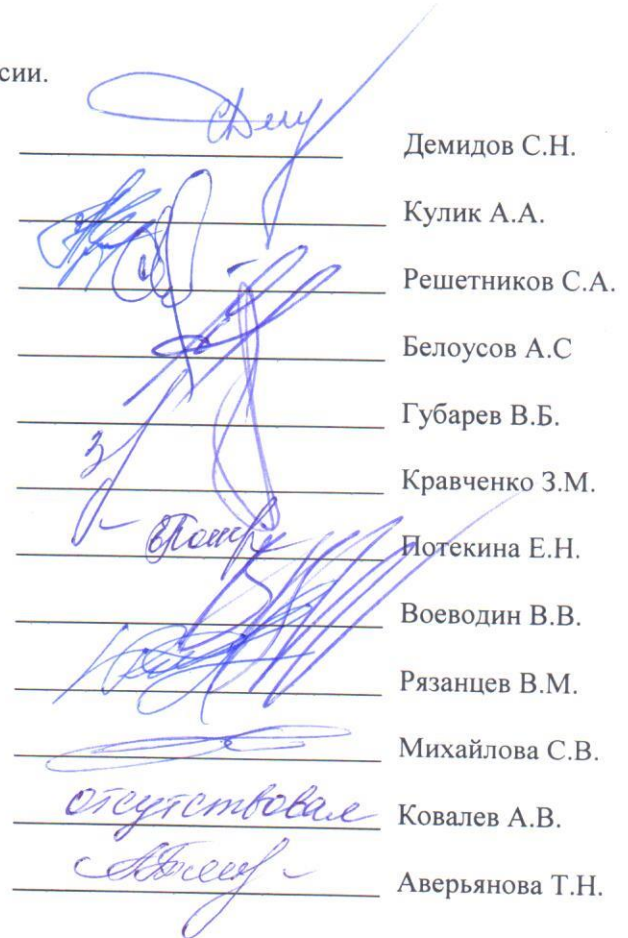 сии.
Демидов С.Н.
Кулик А.А.
Решетников С.А.
Белоусов А.С
Губарев В.Б.
Кравченко З.М.
Потекина Е.Н.
Воеводин В.В.
Рязанцев В.М.
Михайлова С.В.
отсутствовал Ковалев А.В.
Аверьянова Т.Н.